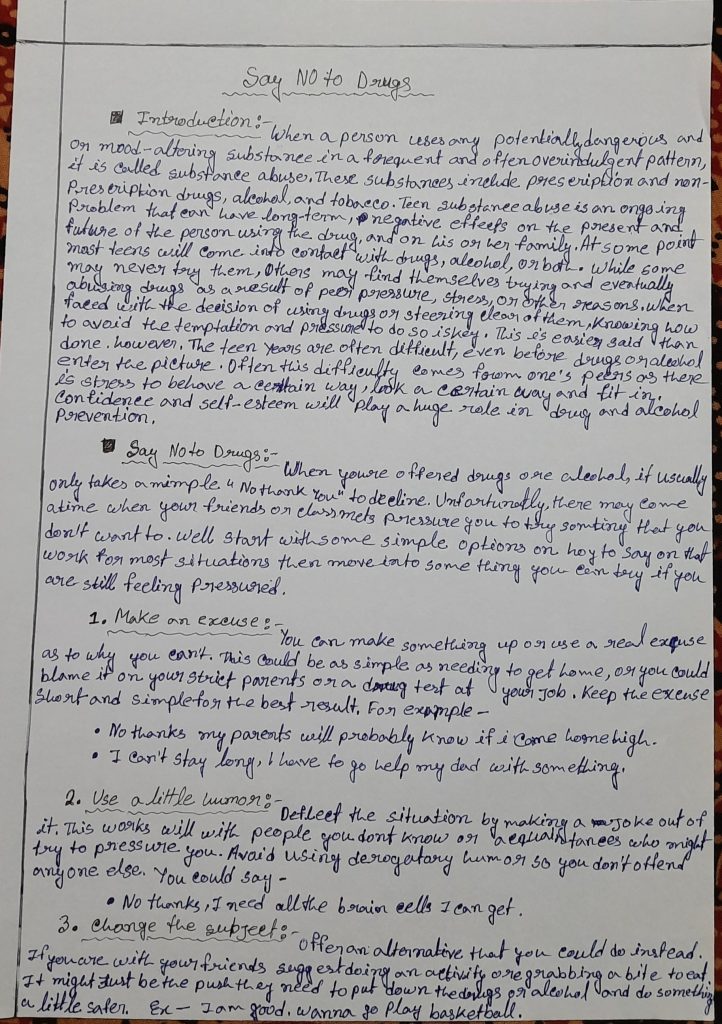 Say NO to Drugs
Introduction:-
When a person uses any potentially dangerous and
or mood-altering substance in a forequent and often overindulgent pattern,
it is called substance abuse. These substances include prescription and non-
Prescription drugs, alcohol, and tobacco. Teen substance abuse is an ongoing
Problem that can have long-term, negative effects on the present and
future of the person using the drug, and on his or her family. At some point
most teens will come into contact with drugs, alcohol, or both. While some
may never try them, Others may find themselves trying and eventually
abusing drugs as a result of peer pressure, stress, or other reasons. When
faced with the decision of using drugs or steering clear of them, Knowing how
to avoid the temptation and pressure to do so is key. This is easier said than
done. however, The teen years are often difficult, even before drugs or alcohol
enter the picture. Often this difficulty comes forom one's peers as there
is stress to behave a certain way, look a certain way and fit in.
Confidence and self-esteem will play a huge role in drug and alcohol
Prevention.
Say No to Drugs:-
When youre offered drugs ore alcohol, it usually
only takes a mimple "No thank You" to decline. Unfortunatly, there may come
a time when your friends or classmets pressure you to try somting that you
don't want to. Well start with some simple options on hoy to say on that
work for most situations then move into some thing you can try if you
are still feeling Pressured.
1. Make an excuse:-
You can make something up or use a real excuse
as to why you can't. This could be as simple as needing to get home, or you could
blame it on your strict parents or a drug test at your Job. Keep the excuse
Short and simple for the best result. For example -
• No thanks my parents will probably know if i come home high.
• I can't stay long, I have to go help my dad with something.
2. Use a little humor:-
Deflect the situation by making a Joke out of
it. This works will with people you dont know or acquaintances who might
try to pressure you. Avoid using derogatory humor so you don't offend
anyone else. You could say -
• No thanks, I need all the brain cells I can get.
3. change the subject:-
Offer an alternative that you could do instead.
If you are with your friends suggest doing an activity ore grabbing a bite to eat.
It might Just be the push they need to put down the drugs or alcohol and do something
a little safer. Ex - I am good. wanna go Play basketball.